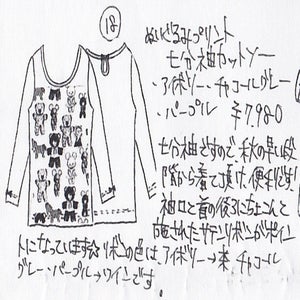 18
ぬいぐるみプリント
七分袖カットソー
・アイボリー・チャコールグレー
・パープル ¥7,980
七分袖ですので、秋の早い段
階から着て頂け、便利です!
袖口と首の後ろにちょこんと
施されたサテンリボンがポイン
トになっています☆リボンの色は アイボリー→赤 チャコール
グレー・パープル→ワインです。